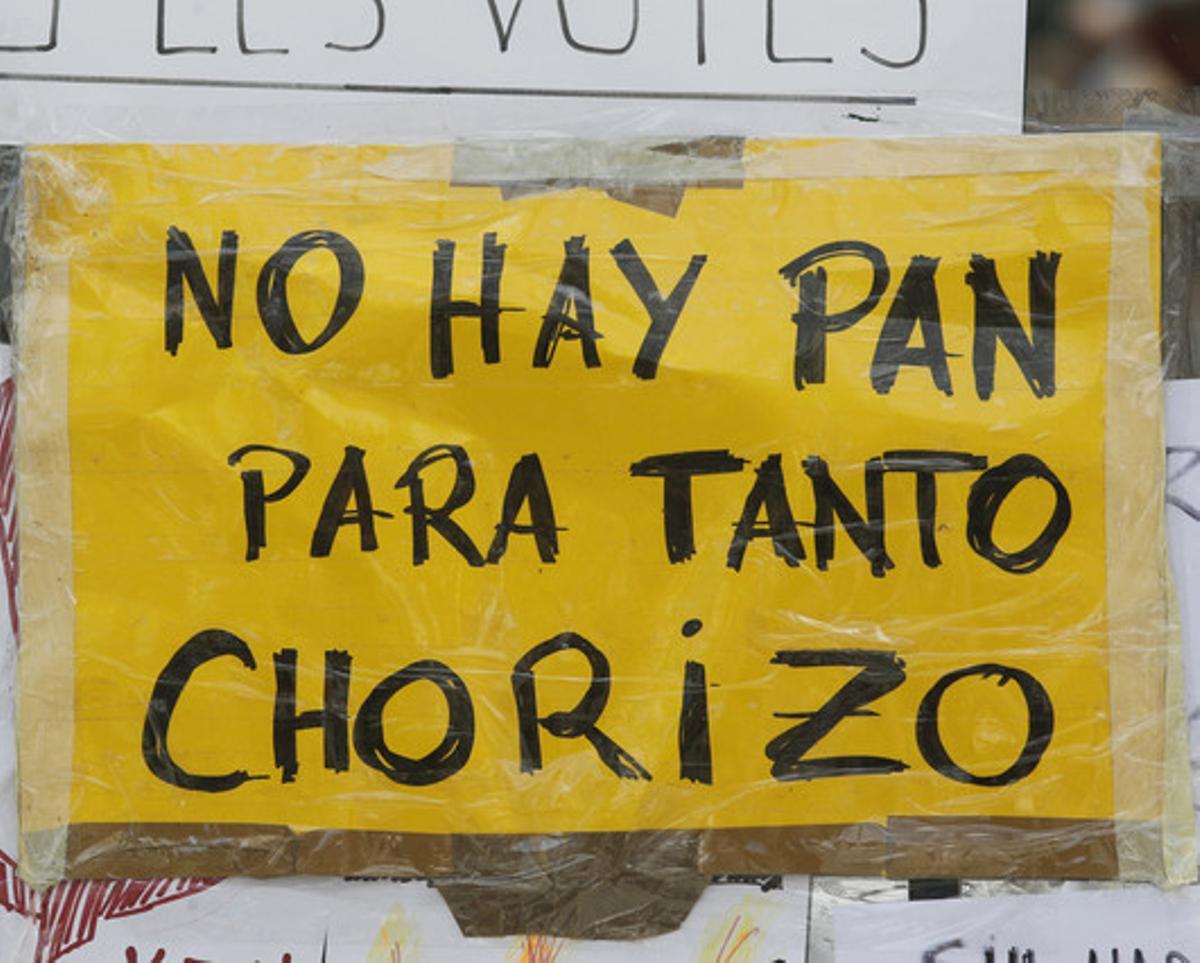 LES VOTES
NO HAY PAN
PARA TANTO
CHORiZO